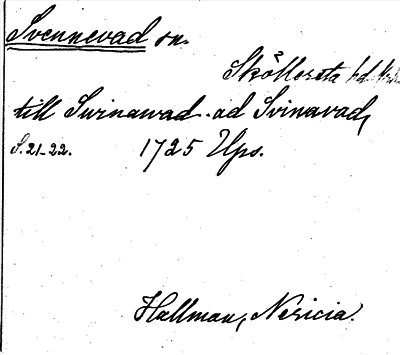 Svennevad sn.
Sköllersta hd.
till Swinawad. ad Svinavad,
S. 21-22. 1725 Ups.
Hallman, Nericia.